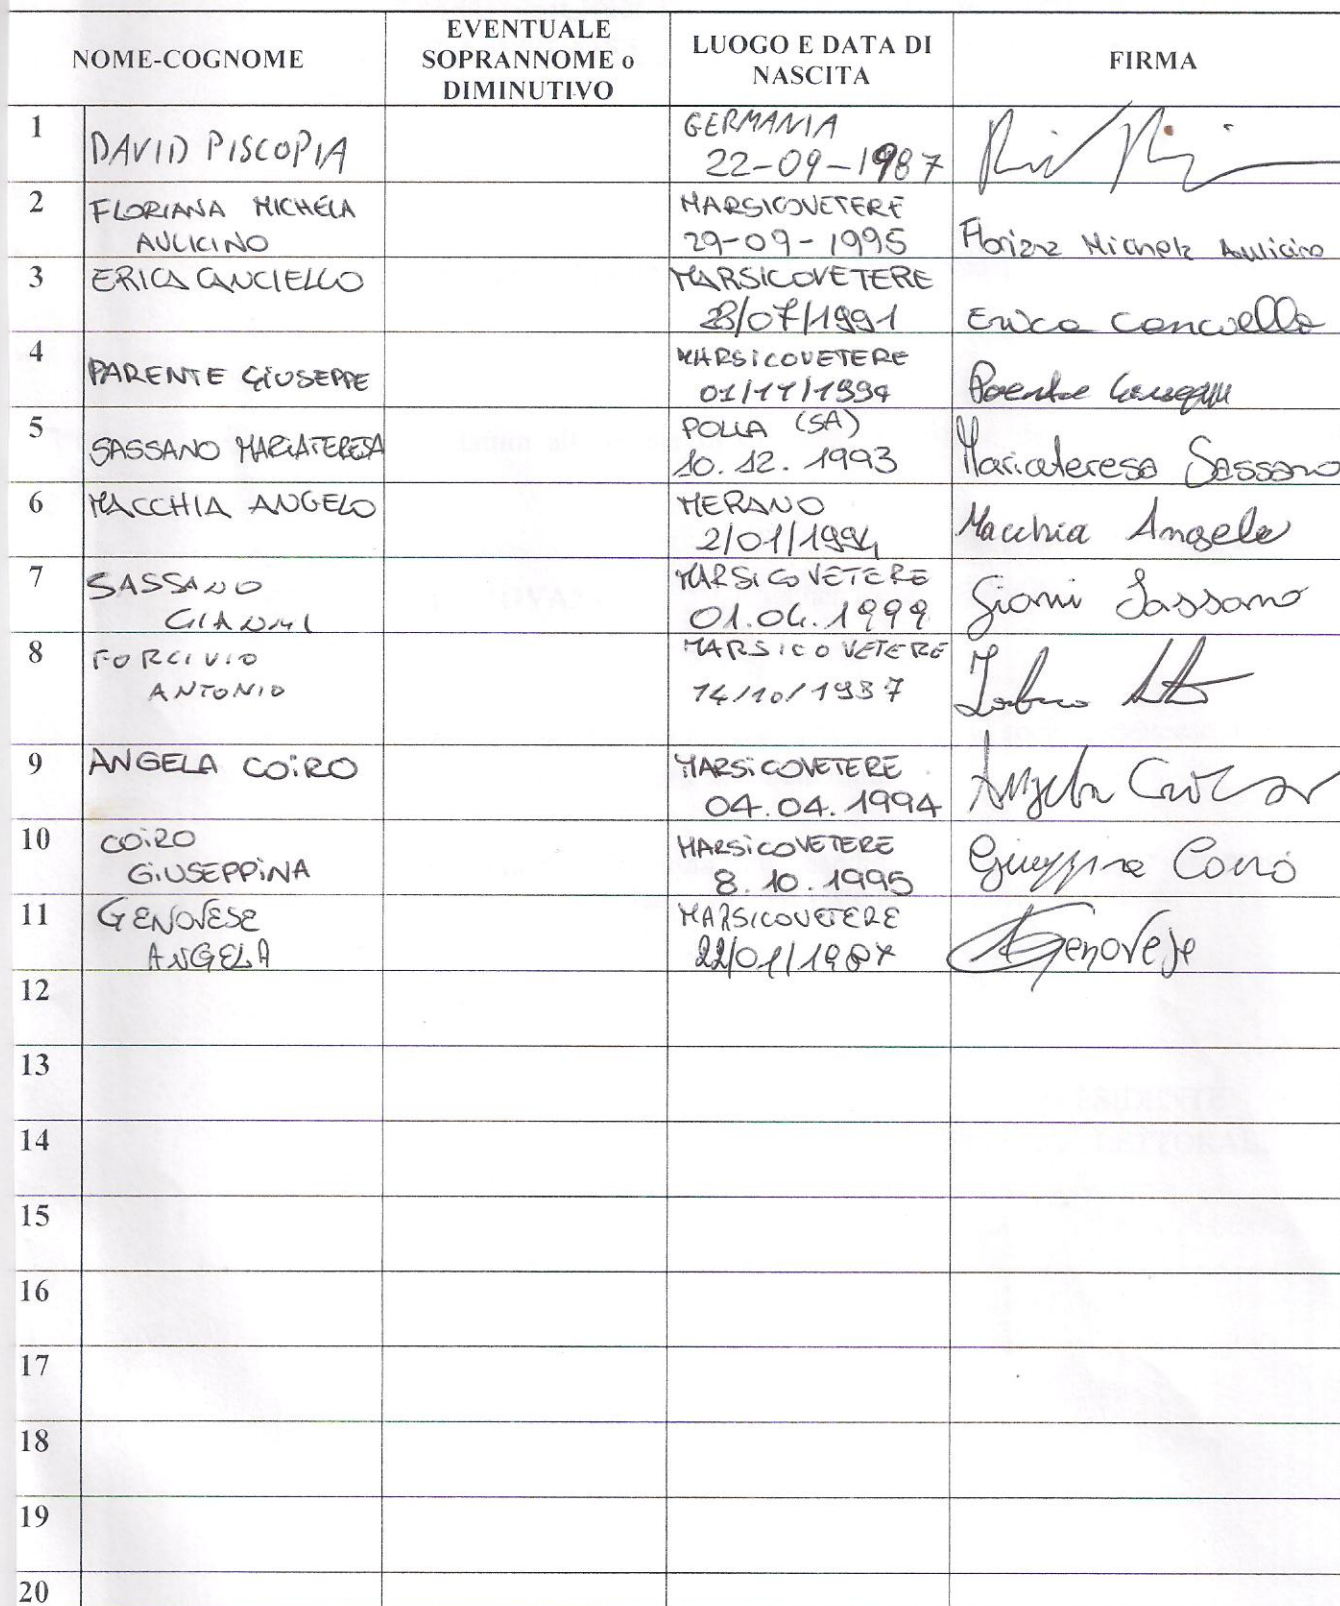 NOME-COGNOME
EVENTUALE
SOPRANNOME o
DIMINUTIVO
LUOGO E DATA DI
NASCITA
FIRMA
1
DAVID PISCOPIA
GERMANIA
22-09-1987
2
FLORIANA MICHELA
AULICINO
MARSICOVETERE
29-09-1995
Floriana Michela Aulicino
3
ERICA CANCIELLO
MARSICOVETERE
28/07/1991
Erica Canciello
4
PARENTE GIUSEPPE
MARSICOVETERE
01/11/1994
Parente Giuseppe
5
SASSANO MARIATERESA
POLLA (SA)
10.12.1993
Mariateresa Sassano
6
MACCHIA ANGELO
MERANO
2/01/1994
Macchia Angelo
7
SASSANO
GIANNI
MARSICOVETERE
01.04.1999
Gianni Sassano
8
ANTONIO
MARSICOVETERE
14/10/1987
9
ANGELA COIRO
MARSICOVETERE
04.04.1994
Angela Coiro
10
COIRO
GIUSEPPINA
MARSICOVETERE
8.10.1995
Giuseppina Coiro
11
GENOVESE
ANGELA
MARSICOVETERE
22/01/1987
AGenovese
12
13
14
15
16
17
18
19
20